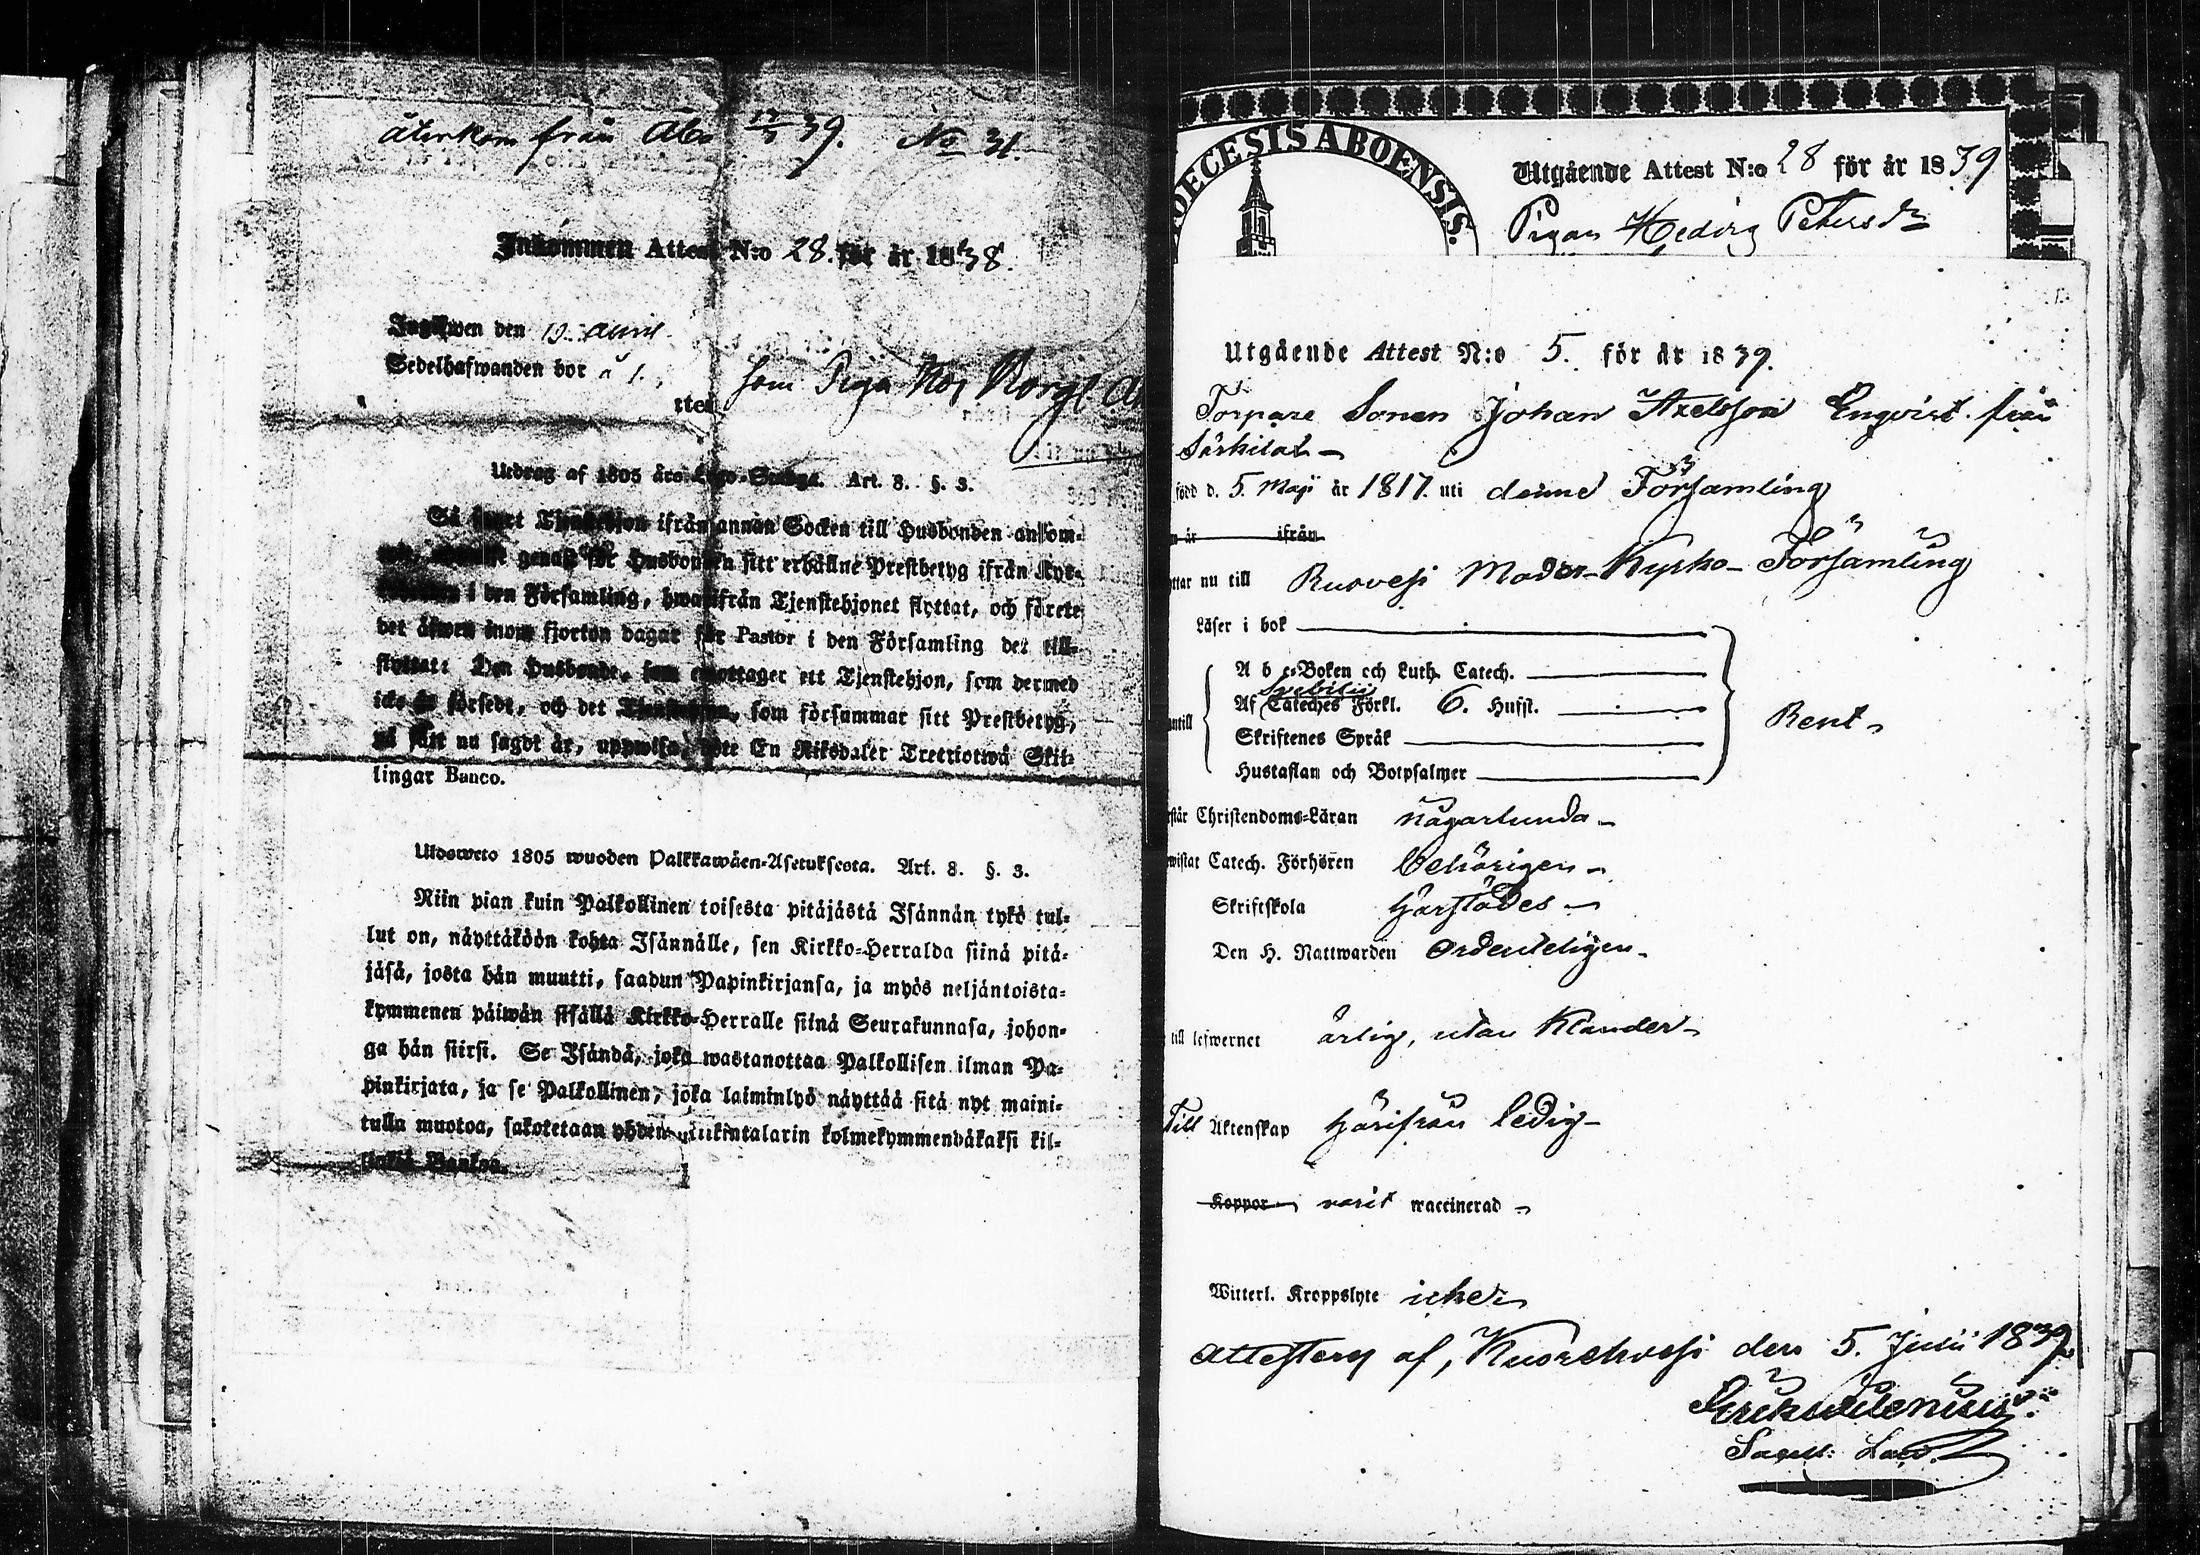 återkom från Åbo 17/5 39. No 31.
Inkommen Attest N:o 28. för år 1838.
Ingifwen den 19. April
Sedelhafwanden bor å 1.
som Piga hos Borg
Utdrag af 1805 års Lego-Stadga. Art. 8. §. 3.
Så snart Tjenstehjon ifrån annan Socken till Husbonden ankom-
genast för Husbonden sitt erhållne Prestbetyg ifrån Kyr-
i den Församling, hwarifrån Tjenstehjonet flyttat, och förete
det äfwen inom fjorton dagar för Pastor i den Församling det till-
flyttat: Den Husbonde, som emottager ett Tjenstehjon, som dermed
icke är försedt, och det Tjenstehjon, som försummar sitt Prestbetyg,
på sätt nu sagdt är, uppwisa, böte En Riksdaler Trettiotwå Skil-
lingar Banco.
Ulosweto 1805 wuoden Palkkawäen-Asetuksesta. Art. 8. §. 3.
Niin pian kuin Palkollinen toisesta pitäjästä Isännän tykö tul-
lut on, näyttäköön kohta Isännälle, sen Kirkko-Herralda siinä pitä-
jäsä, josta hän muutti, saadun Papinkirjansa, ja myös neljäntoista-
kymmenen päiwän sisällä Kirkko-Herralle siinä Seurakunnasa, johon-
ga hän siirsi. Se Isändä, joka wastanottaa Palkollisen ilman Pa-
pinkirjata, ja se Palkollinen, joka laiminlyö näyttää sitä nyt maini-
tulla muotoa, sakotetaan yhden Riikintalarin kolmekymmendäkaksi kil-
lingiä Bankoa.
DIOECESIS ABOENSIS.
Utgående Attest N:o 28 för år 1839
Pigan Hedvig Petersdr
Utgående Attest N:o 5. för år 1839.
Torpare Sonen Johan Axelsson Enqvist från
Särkilax
född d. 5. Maji år 1817. uti denne Församling
n år ifrån
ttar nu till Ruovesi Moder-Kyrko-Församling
Läser i bok
A b c-Boken och Luth. Catech.
Svebilii
Af Cateches Förkl. 6. Hufst.
antill
Skriftenes Språk
Rent
Hustaflan och Botpsalmer
rstår Christendoms-Läran någorlunda
wistat Catech. Förhören behörigen
Skriftskola härstädes
Den H. Nattwarden ordenteligen
till lefwernet ärlig, utan klander
Till Äktenskap härifrån ledig
Koppor varit waccinerad
Witterl. Kroppslyte icke
Attesterg af, Kuorehvesi den 5. Julii 1839
Sacell: